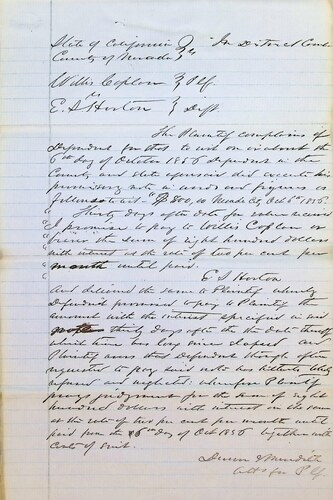 State of California } ss In District Court
County of Nevada
Willis Coplon } Plf
vs
E. S Horton } Dift
The Plaintiff complains of
Defendant for that to wit on or about the
6th day of October 1856 Defendant in the
County and state aforesaid did execute his
promissory note in words and figures as
follows to wit $800,00 Nevada Co, Oct 6th 1856.
Thirty days after date for value received
I promise to pay to Willis Coplon or
bearer the sum of eight hundred dollars
with interest at the rate of two per cent per
month until paid.
E S Horton
And delivered the same to Plaintiff whereby
Defendant promised to pay to Plaintiff the
amount with the interest specified in said
note thirty days after the date thereof
which time has long since elapsed and
Plaintiff avers that Defendant though often
requested to pay said note has hitherto wholly
refused and neglected: wherefore Plaintiff
prays judgment for the sum of eight
hundred dollars with interest on the same
at the rate of two per cent per month until
paid from the 6th day of Oct 1856 together with
costs of suit.
Attys for Plf